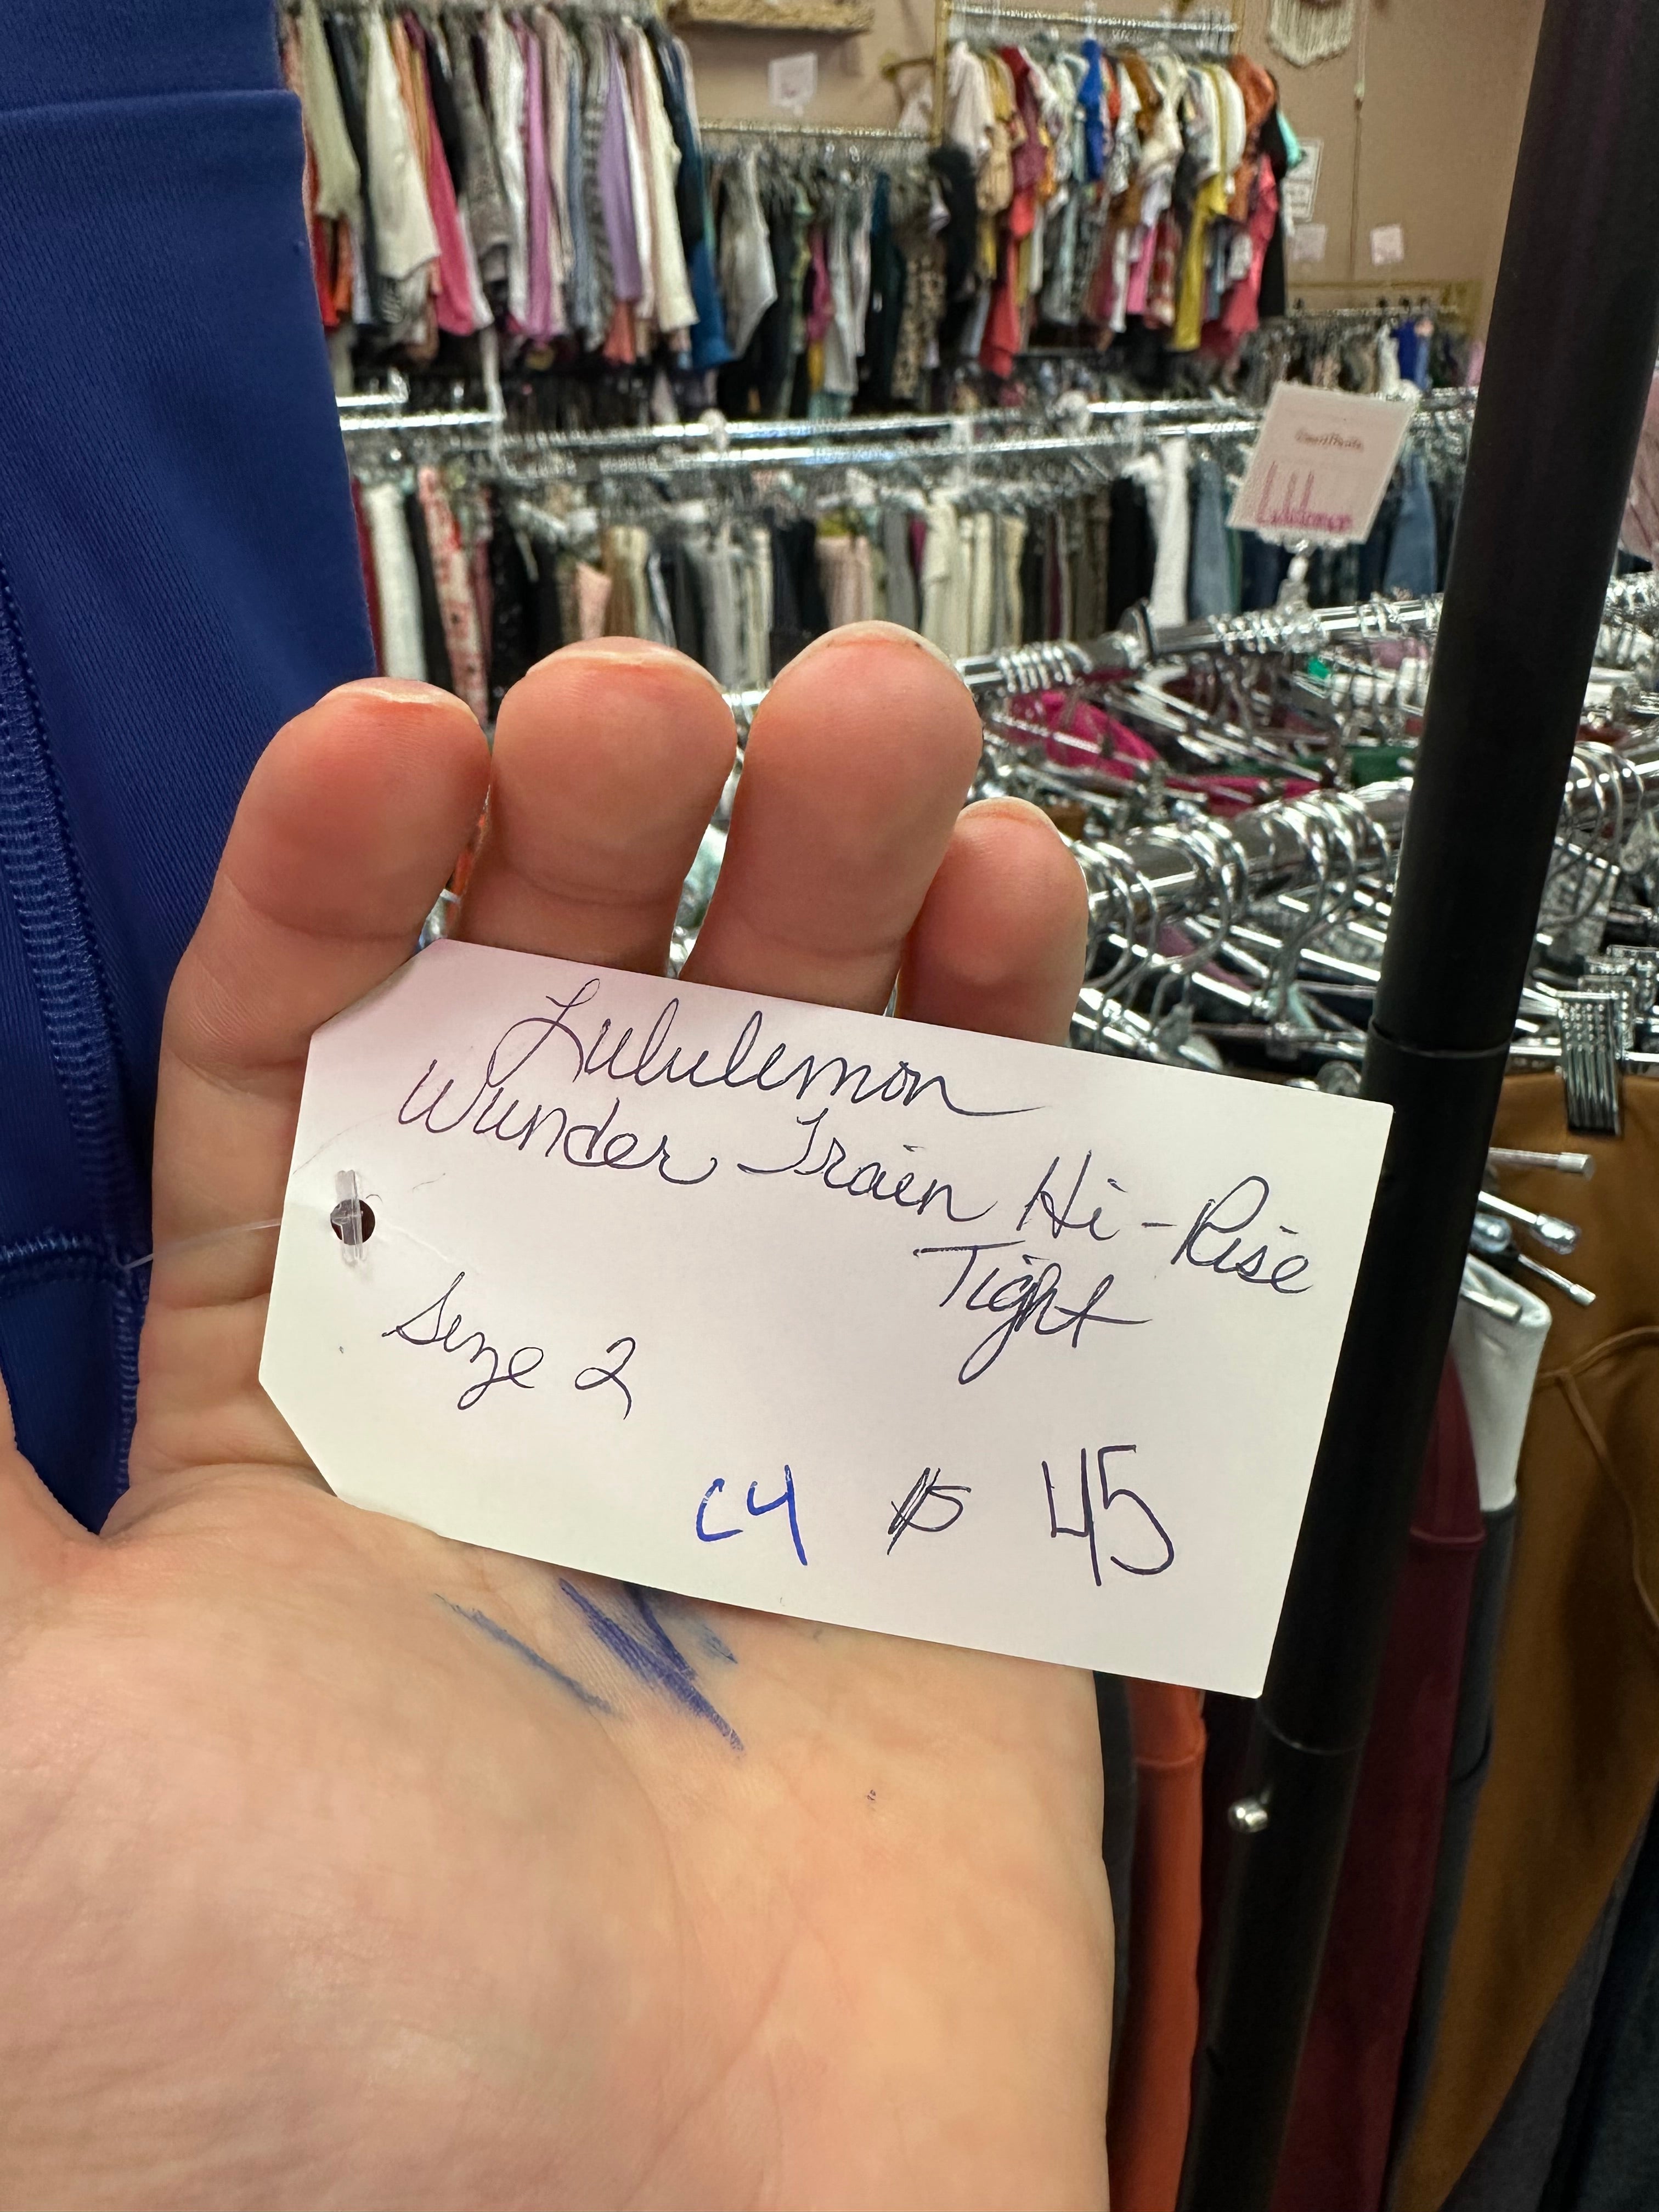 Lululemon
Lululemon
Wunder Train Hi-Rise
Tight
Size 2
C4 $ 45